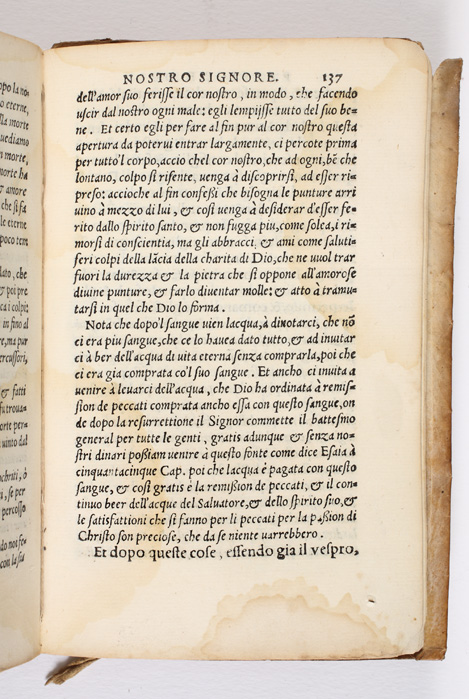 ppo la no-
o eterne,
lla morte
uediamo
n morte,
morte ha
& amore
che si fa
le eterne
poco tem
lato, che
& poi pre
ca i colpi;
in fino al
re, ma pur
ercussori,
& fatti
fu troua-
orte per-
uinto dal
nchriti, ò
, se per
percosso
do not fe-
con la sua
NOSTRO SIGNORE. 137
dell'amor suo ferisse il cor nostro, in modo, che facendo
uscir dal nostro ogni male: egli lempijsse tutto del suo be-
ne. Et certo egli per fare al fin pur al cor nostro questa
apertura da poterui entrar largamente, ci percote prima
per tutto'l corpo, accio chel cor nostro, che ad ogni, bẽ che
lontano, colpo si risente, uenga à discoprirsi, ad esser ri-
preso: accioche al fin confeßi che bisogna le punture arri
uino à mezzo di lui, & cosi uenga à desiderar d'esser fe-
rito dallo spirito santo, & non fugga piu, come solea, i ri-
morsi di conscientia, ma gli abbracci, & ami come saluti-
feri colpi della lãcia della charita di Dio, che ne uuol trar
fuori la durezza & la pietra che si oppone all'amorose
diuine punture, & farlo diuentar molle: & atto à tramu-
tarsi in quel che Dio lo forma.
Nota che dopo'l sangue uien lacqua, à dinotarci, che nõ
ci era piu sangue, che ce lo hauea dato tutto, & ad inuitar
ci à ber dell'acqua di uita eterna senza comprarla, poi che
ei era gia comprata co'l suo sangue. Et ancho ci inuita a
uenire à leuarci dell'acqua, che Dio ha ordinata à remis-
sion de peccati comprata ancho essa con questo sangue, on
de dopo la resurrettione il Signor commette il battesmo
general per tutte le genti, gratis adunque & senza no-
stri dinari poßiam uentre à questo fonte come dice Esaia à
cinquantacinque Cap. poi che lacqua è pagata con questo
sangue, & cosi gratis è la remißion de peccati, & il con-
tinuo beer dell'acque del Saluatore, & dello spirito suo, &
le satisfattioni che si fanno per li peccati per la paßion di
Christo son preciose, che da se niente uarrebbero.
Et dopo queste cose, essendo gia il vespro,